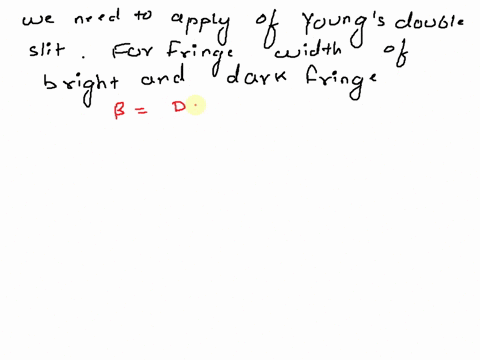 we need to apply of Young's double
slit. For fringe width of
bright and dark fringe
β = D